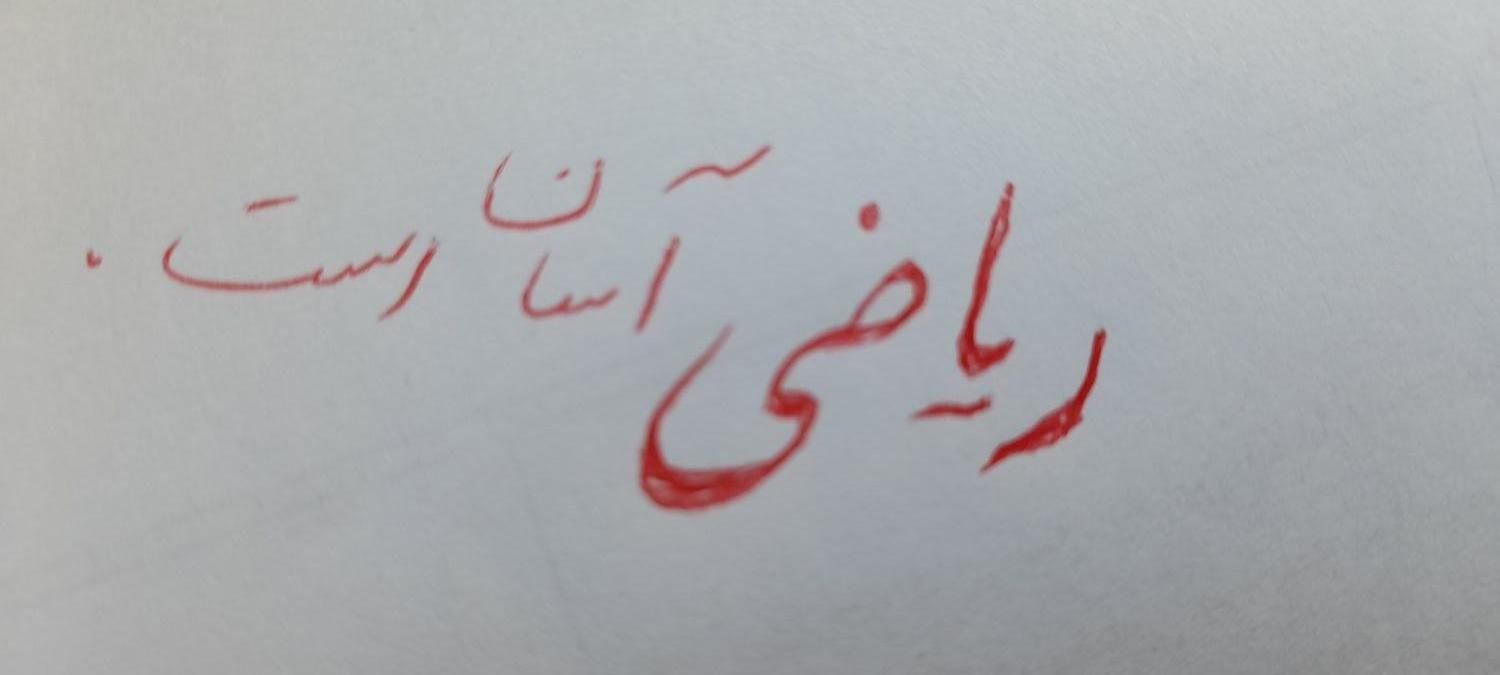 ریاضی آسان است.